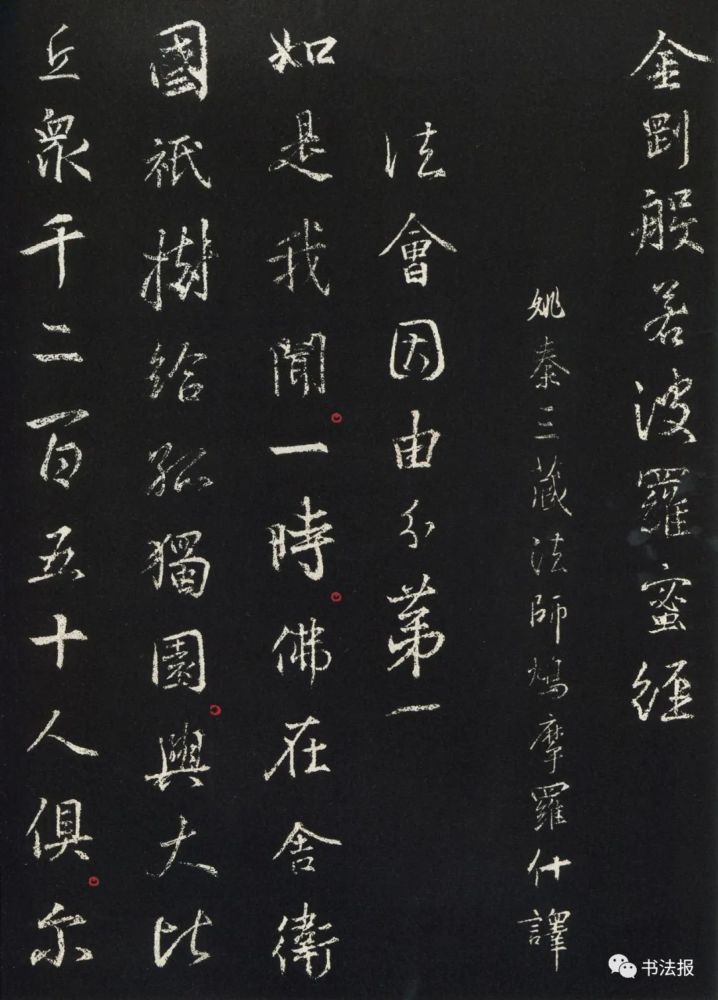 金剛般若波羅蜜經
姚秦三藏法師鳩摩羅什譯
法會因由分第一
如是我聞。一時。佛在舍衛
國祇樹給孤獨園。與大比
丘衆千二百五十人俱。尔
书法报